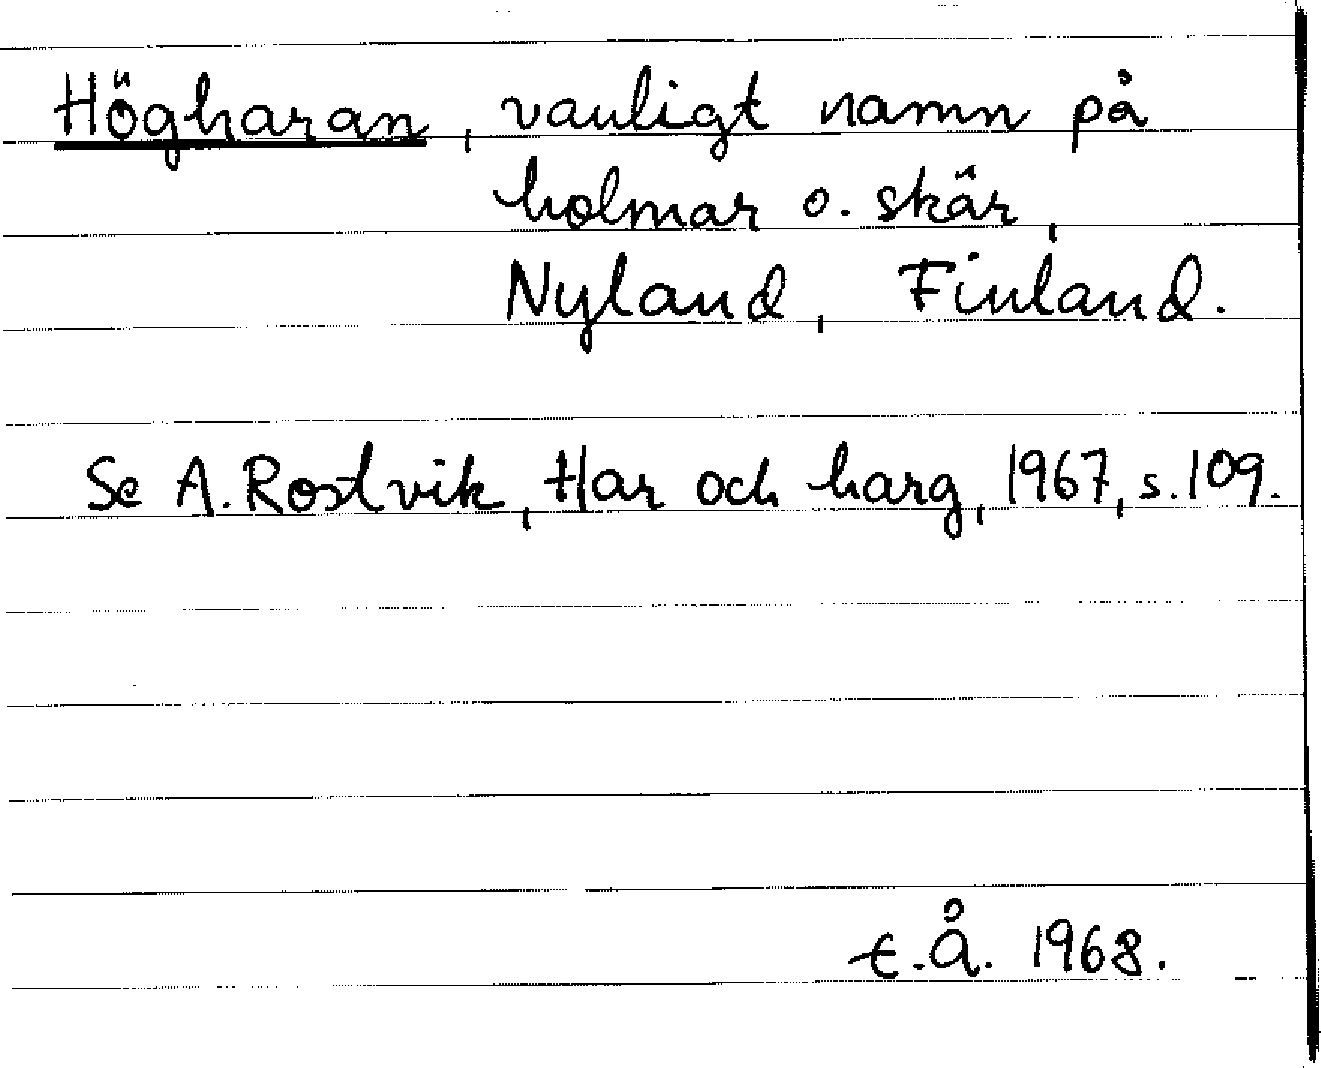 Högharan, vanligt namn på
holmar o. skär,
Nyland, Finland.
Se A. Rostvik, Har och harg, 1967, s. 109.
E.Å. 1968.